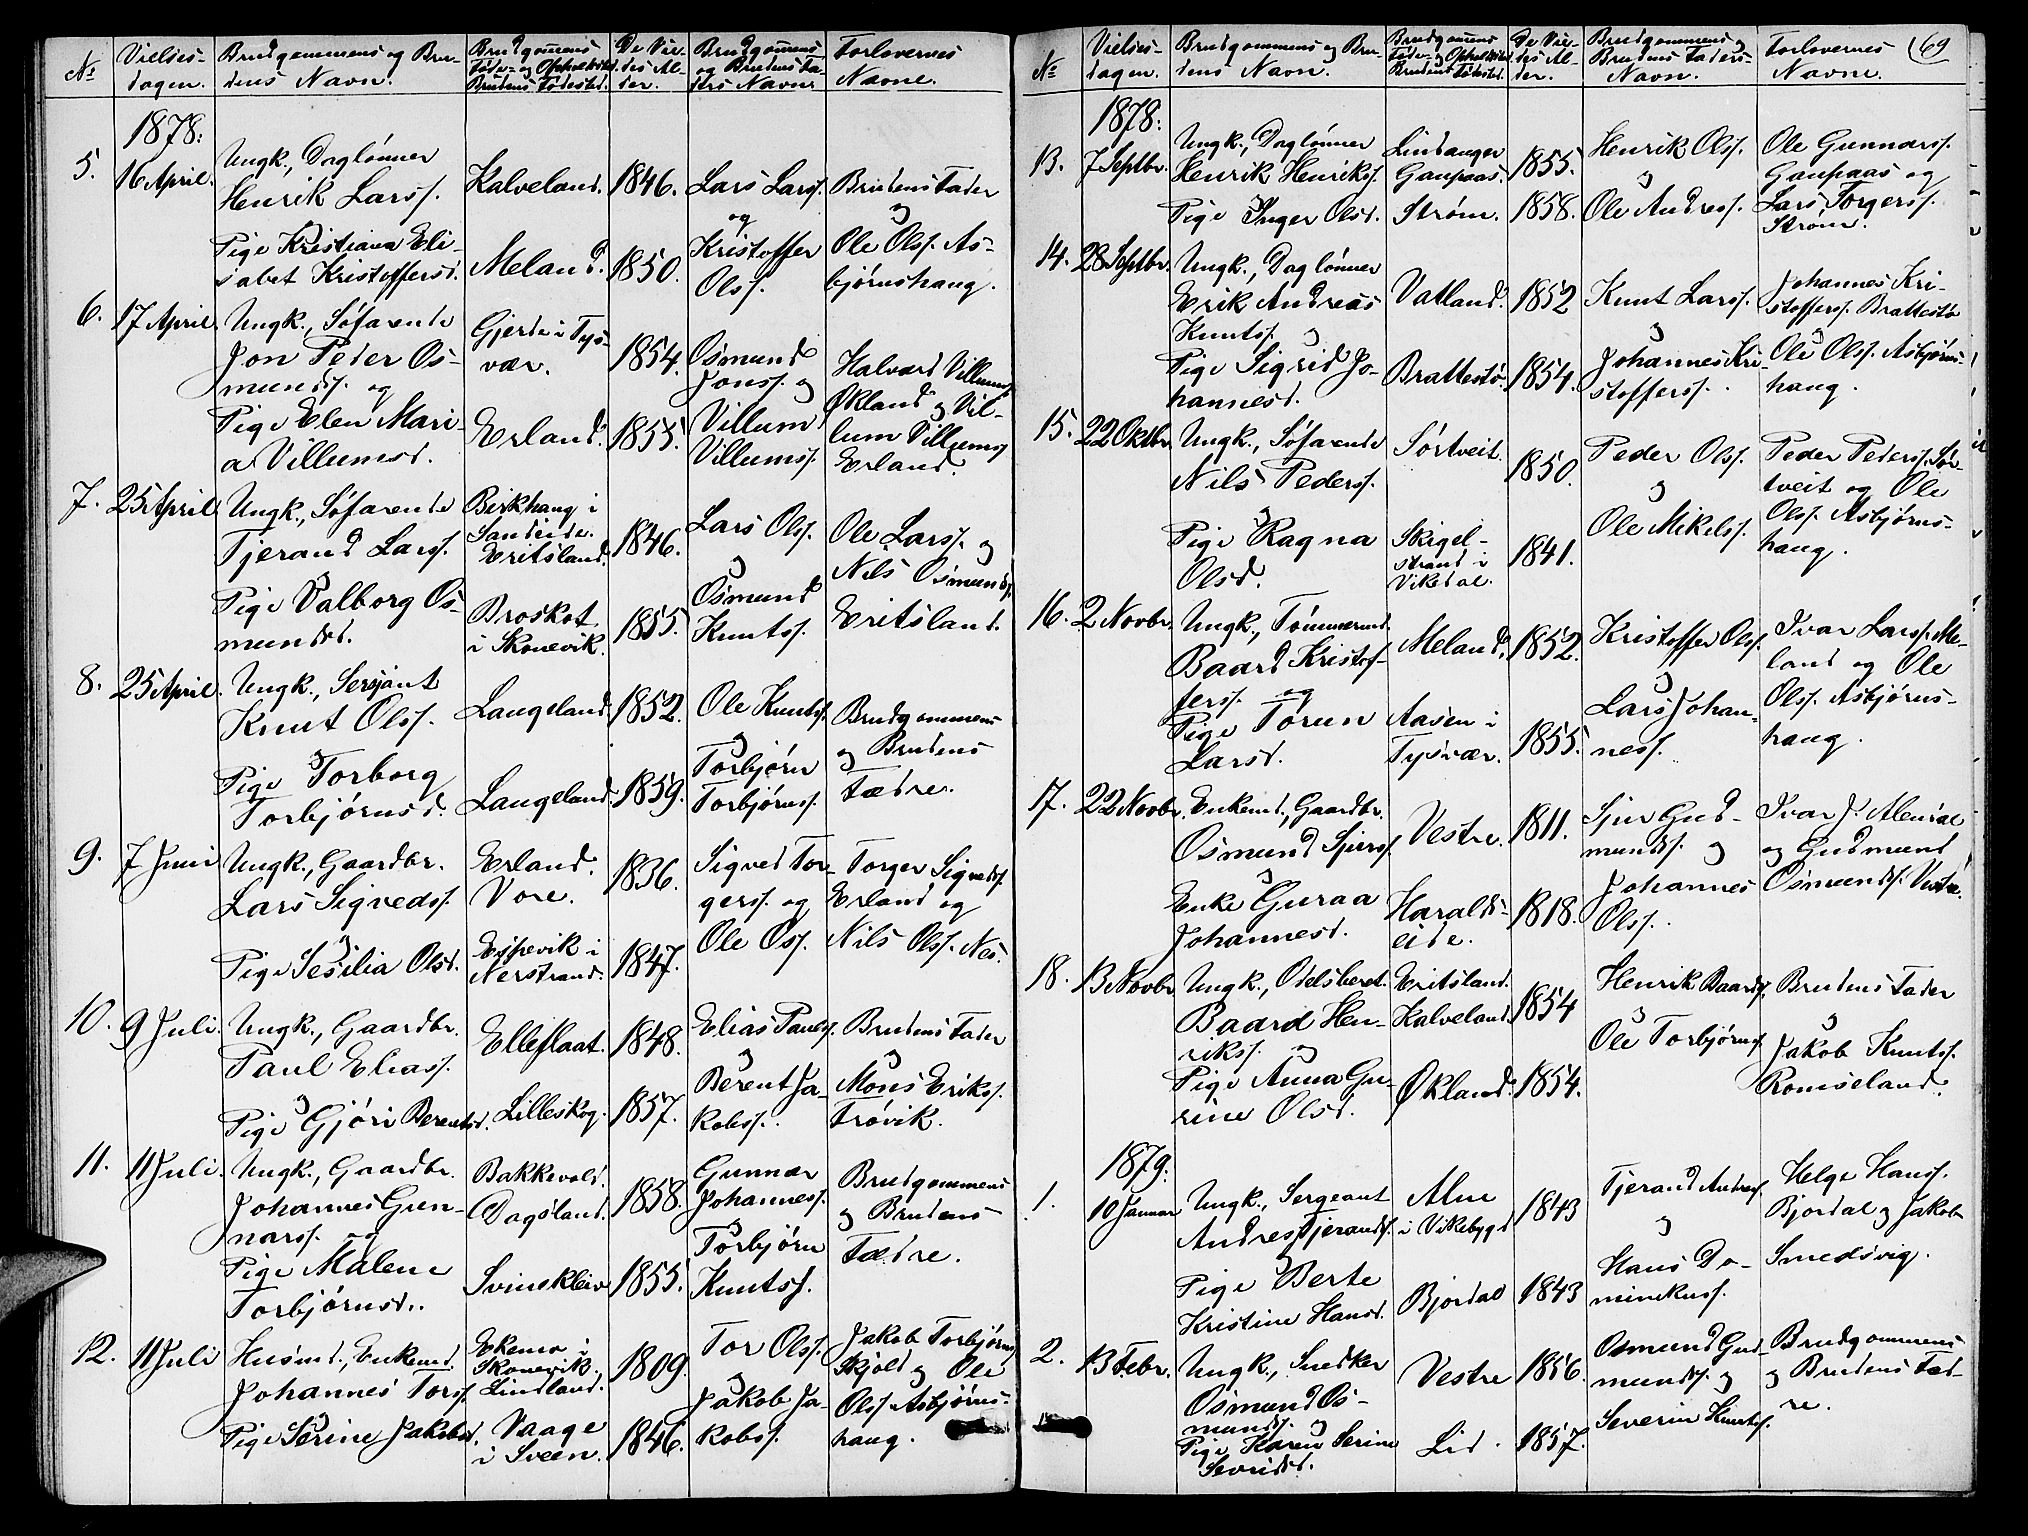 №
Vielses-
dagen.
Brudgommens og Bru-
dens Navn.
Brudgommens
Føde- og Opholdssted
Brudens Fødested.
De Vie-
des Al-
der.
Brudgommens
og Brudens Fa-
ders Navne
Forlovernes
Navne.
1878:
5.
16 April.
Ungk., Daglønner
Henrik Larss.
Kalveland.
1846.
Lars Larss.
og
Brudens Fader
og
Pige Kristiana Eli-
sabet Kristoffersd.
Meland.
1850.
Kristoffer
Olss.
Ole Olss. As-
bjørnshaug.
6.
17 April.
Ungk., Søfarende
Jon Peder Os-
mundss. og
Gjerde i Tys-
vær.
1854.
Osmund
Jonss. og
Halvard Villumss.
Økland og Vil-
Pige Elen Mari-
a Villumsd.
Erland.
1855.
Villum
Villumss.
lum Villumss.
Erland.
7.
25 April.
Ungk., Søfarende
Tjerand Larss.
og
Birkhaug i
Sandeide.
Eritsland.
1846.
Lars Olss.
og
Ole Larss. og
Nils Osmundss.
Pige Valborg Os-
mundsd.
Broskot
i Skonevik.
1855.
Osmund
Knutss.
Eritsland.
8.
25 April.
Ungk., Sersjant
Knut Olss.
og
Langeland.
1852.
Ole Knutss.
og
Brudgommens
og Brudens
Pige Torborg
Torbjørnsd.
Langeland.
1859.
Torbjørn
Torbjørnss.
Fædre.
9.
7 Juni
Ungk., Gaardbr.
Lars Sigvedss.
og
Erland.
Vore.
1836.
Sigved Tor-
gerss. og
Torger Sigvedss.
Erland og
Pige Sesilia Olsd.
Espevik i
Nerstrand.
1847.
Ole Oss.
Nils Olss. Nes.
10.
9 Juli.
Ungk., Gaardbr.
Paul Eliass.
og
Elleflaat.
1848.
Elias Paulss.
og
Brudens Fader
og
Pige Gjøri Berentsd.
Lilleskog.
1857.
Berent Ja-
kobss.
Mons Erikss.
Frøvik.
11.
11 Juli.
Ungk., Gaardbr.
Johannes Gun-
narss. og
Bakkevold.
Dagsland.
1858.
Gunnar
Johanness.
og
Brudgommens
og Brudens
Pige Malene
Torbjørnsd.
Svinekleiv
1855.
Torbjørn
Knutss.
Fædre.
12.
11 Juli
Husmd., Enkemd.
Johannes Torss.
og
Ekemo i
Skonevik.
Lindland.
1809.
Tor Olss.
og
Jakob Torbjørnss.
Skjold og Ole
Pige Serine Jakobsd.
Vaage
i Sveen.
1846.
Jakob Ja-
kobss.
Olss. Asbjørns-
haug.
69
№
Vielses-
dagen.
Brudgommens og Bru-
dens Navn.
Brudgommens
Føde- og Opholdssted
Brudens Fødested.
De Vie-
des Al-
der.
Brudgommens og
Brudens Faders-
Navn.
Forlovernes
Navne.
1878:
13.
7 Septbr.
Ungk., Daglønner
Henrik Henrikss.
og
Lindanger
Gaupaas.
1855.
Henrik Olss.
og
Ole Gunnarss.
Gaupaas og
Pige Inger Olsd.
Strøm.
1858.
Ole Andress.
Lars Torgerss.
Strøm.
14.
28 Septbr.
Ungk., Daglønner
Erik Andreas
Knutss. og
Vatland.
1852
Knut Larss.
og
Johannes Kri-
stofferss. Brattestø
og
Pige Sigrid Jo-
hannesd.
Brattestø.
1854.
Johannes Kri-
stofferss.
Ole Olss. Asbjørns-
haug.
15.
22 Oktbr.
Ungk., Søfarende
Nils Pederss.
og
Sørtveit.
1850.
Peder Olss.
og
Peder Pederss. Sør-
tveit og Ole
Pige Ragna
Olsd.
Skigel-
strand i
Vikedal.
1841.
Ole Mikelss.
Olss. Asbjørns-
haug.
16.
2 Novbr.
Ungk., Tømmermd.
Baard Kristof-
ferss. og
Meland.
1852.
Kristoffer Olss.
og
Ivar Larss. Me-
land og Ole
Pige Torun
Larsd.
Aasen i
Tysvær.
1855.
Lars Johan-
ness.
Olss. Asbjørns-
haug.
17.
22 Novbr.
Enkemd., Gaardbr.
Osmund Sjurss.
og
Vestre.
1811.
Sjur Gud-
mundss. og
Ivar J. Alendal
og Gudmund
Enke Guraa
Johannesd.
Haralds-
eide.
1818.
Johannes
Olss.
Osmundss. Vestre.
18.
13 Novbr
Ungk., Odelsberet.
Baard Hen-
rikss. og
Eritsland.
Kalveland.
1854
Henrik Baardss.
og
Brudens Fader
og
Pige Anna Gu-
rine Olsd.
Økland.
1854.
Ole Torbjørnss.
Jakob Knutss.
Romseland.
1879.
1.
10 Januar
Ungk., Sergeant
Andres Tjerandss.
og
Alne
i Vikebygd
1843
Tjerand Andress.
og
Helge Hanss.
Bjordal og Jakob
Pige Berte
Kristine Hansd.
Bjordal
1843
Hans Do-
minikuss.
Smedsvig.
2.
13 Febr.
Ungk., Snedker
Osmund Os-
mundss. og
Vestre
1856.
Osmund Gud-
mundss. og
Brudgommens
og Brudens Fæd-
re.
Pige Karen Serine
Sevridsd.
Lid.
1857.
Severin Knutss.